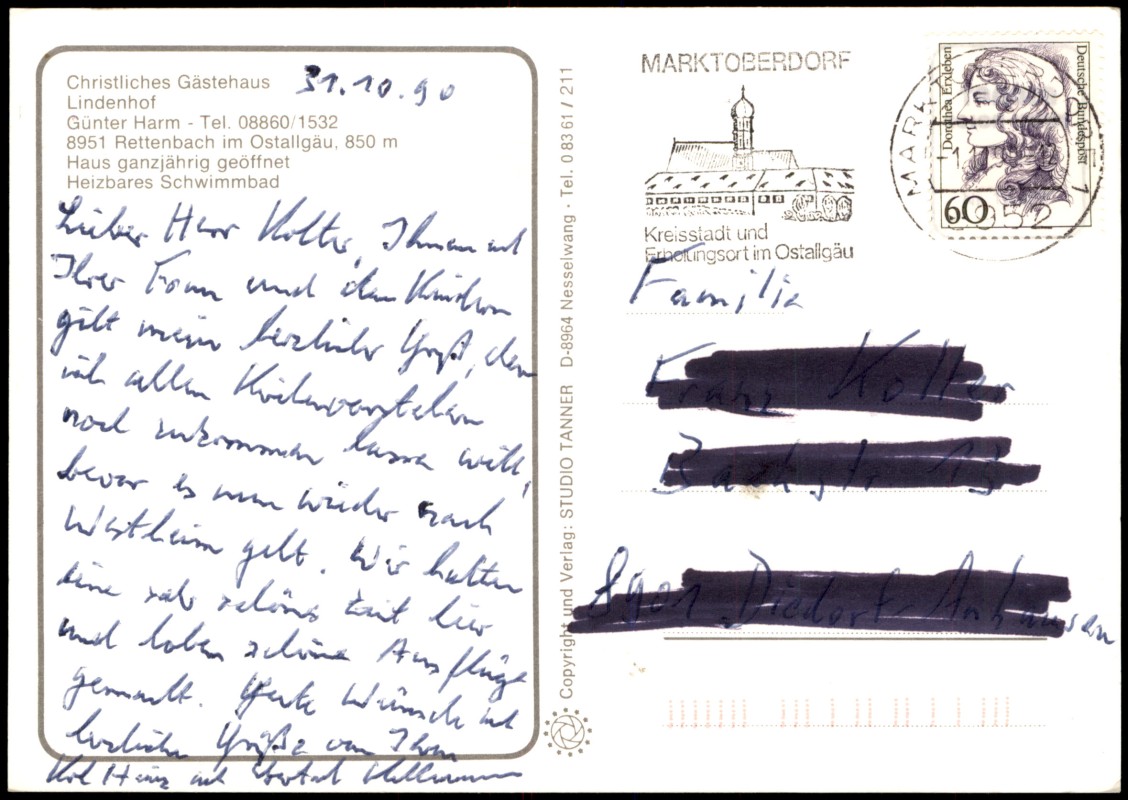 Christliches Gästehaus
Lindenhof
Günter Harm - Tel. 08860/1532
8951 Rettenbach im Ostallgäu, 850 m
Haus ganzjährig geöffnet
Heizbares Schwimmbad
31.10.90
Lieber Herr Kolter, Ihnen und
Ihrer Frau und den Kindern
gilt mein herzlicher Gruß, den
ich allen
noch zukommen lassen will,
bevor es nun wieder nach
Westheim geht. Wir hatten
eine sehr schöne Zeit hier
und haben schöne Ausflüge
gemacht. Gute Wünsche und
herzliche Grüße von Ihrem
Karl Heinz und
Copyright und Verlag: STUDIO TANNER D-8964 Nesselwang · Tel. 0 83 61 / 211
MARKTOBERDORF
Kreisstadt und
Erholungsort im Ostallgäu
Dorothea Erxleben
Deutsche Bundespost
60
Familie